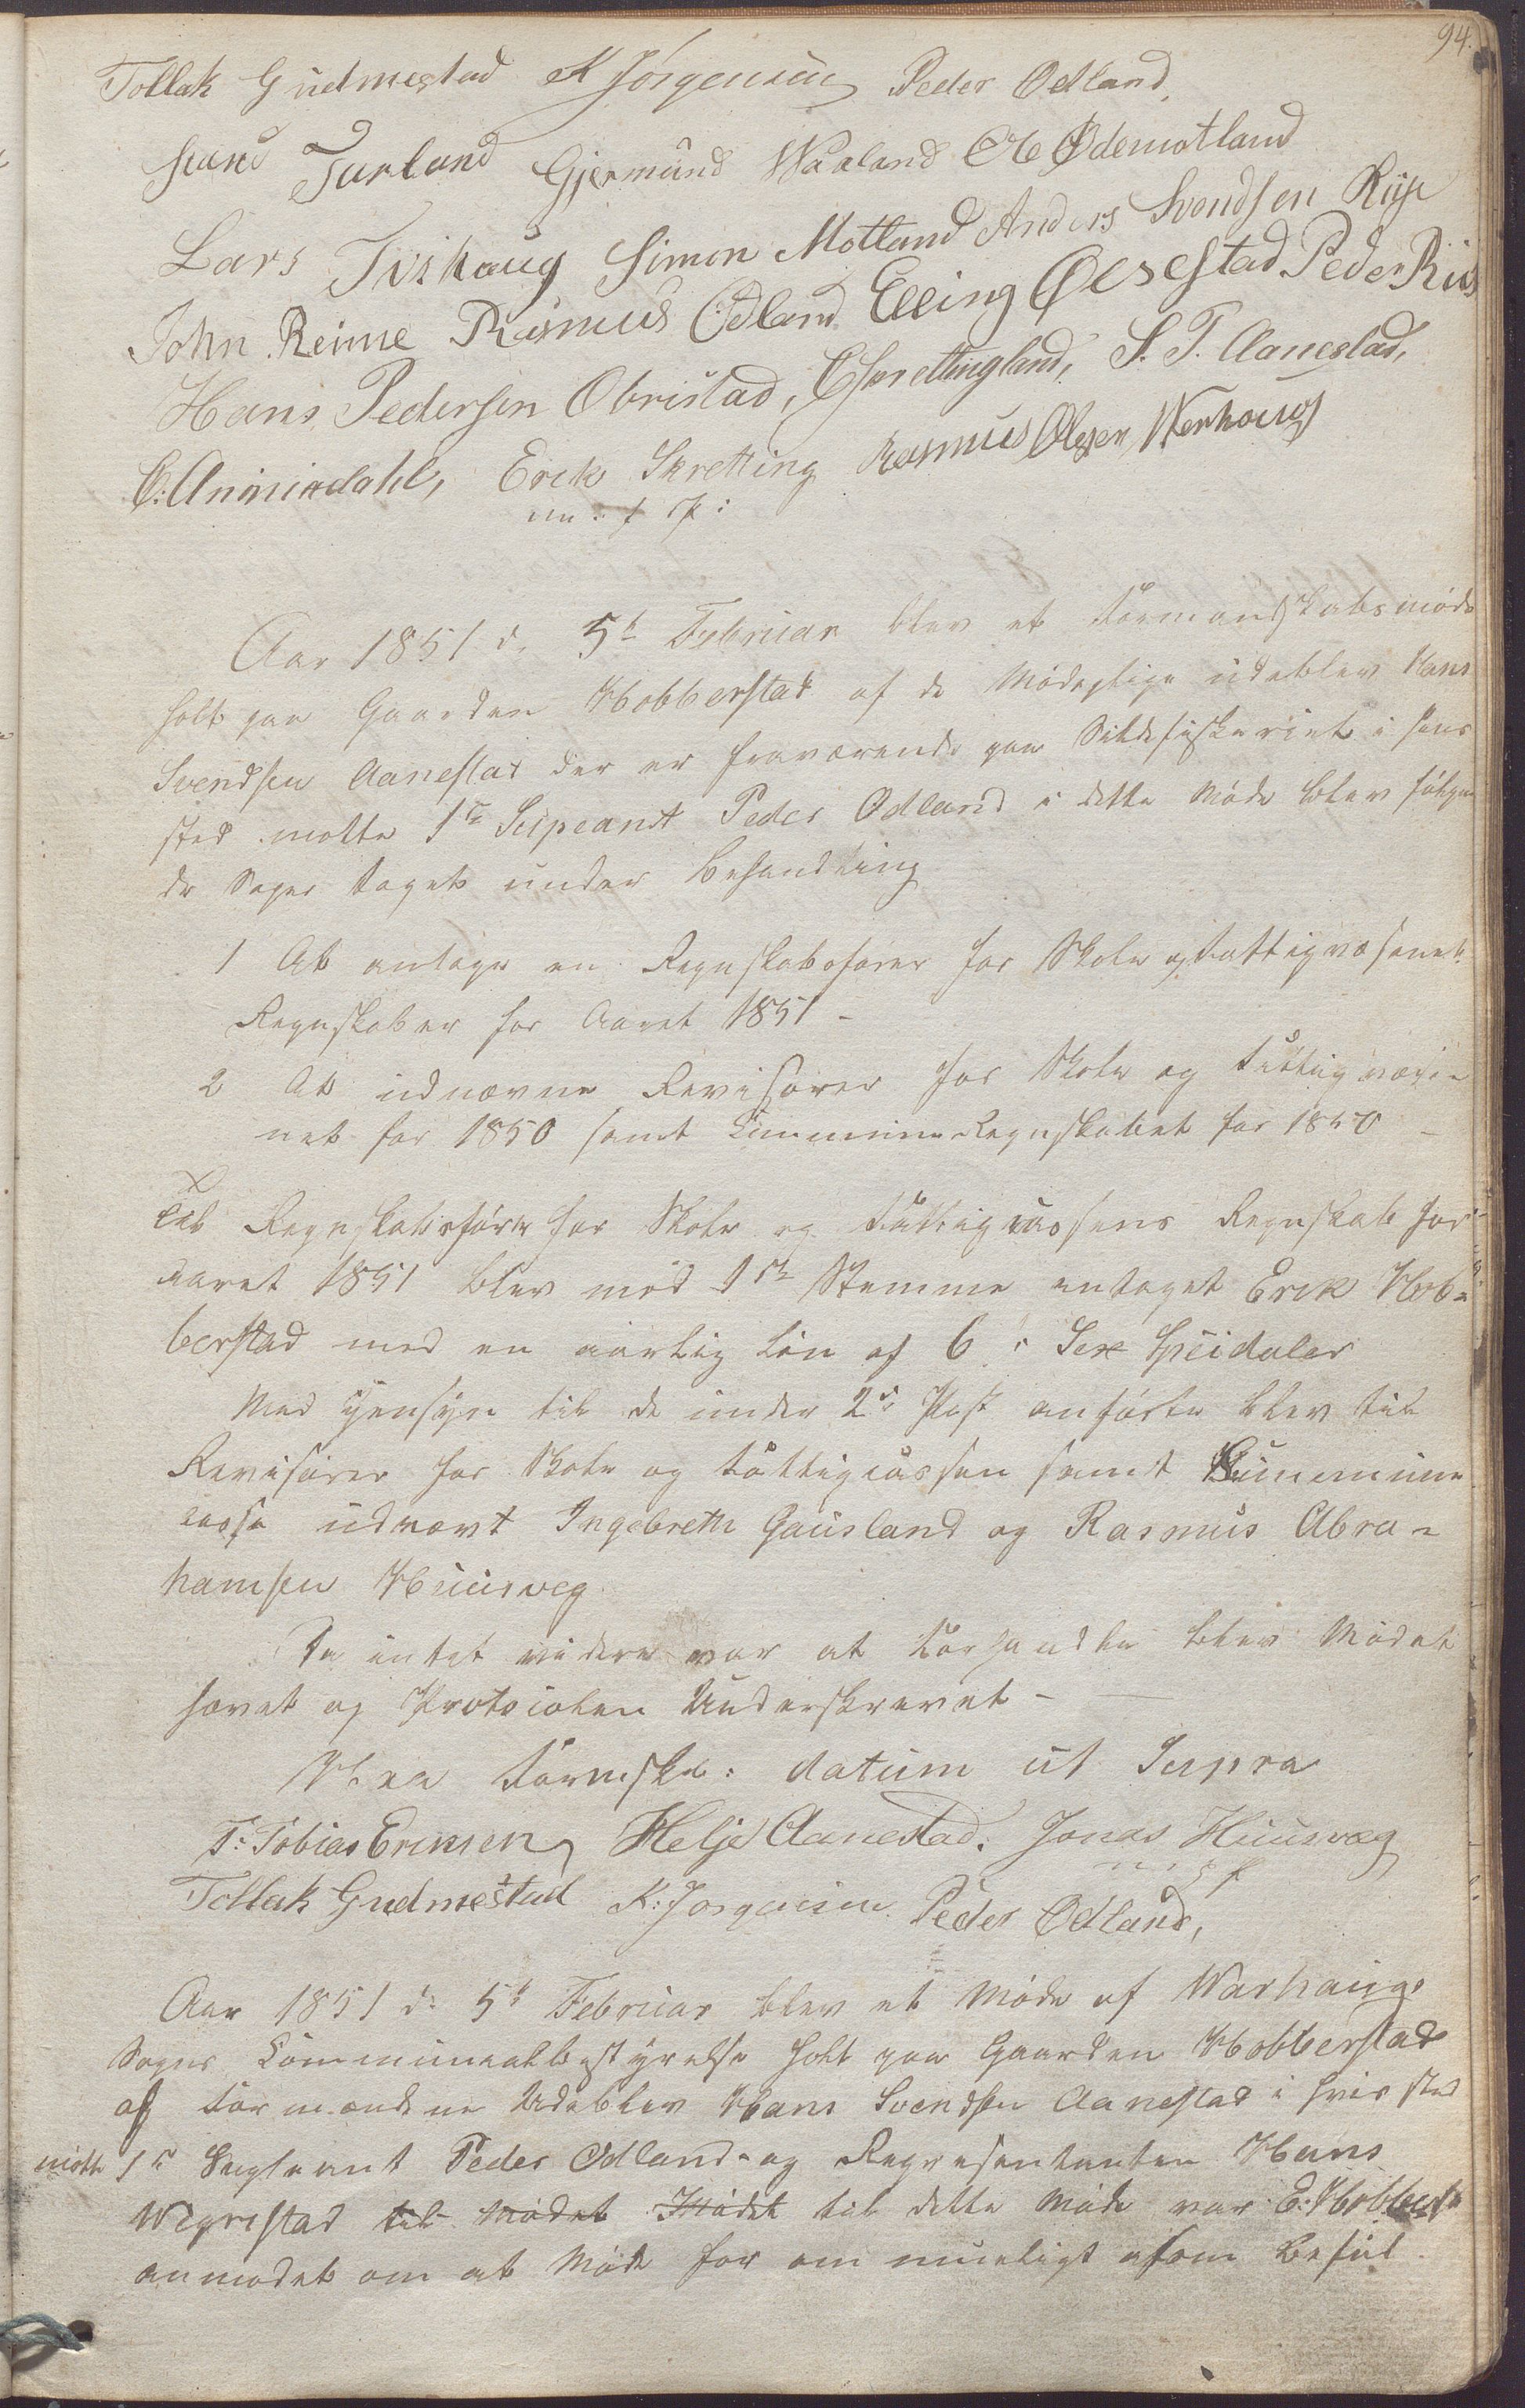 94.
Tollak Gudmestad K Jörgensen Peder Odland,
Gjermund Waaland Ole Ødemotland
Lars Tvihaug Simon Motland Anders Svendsen Riise
John Reime Rasmus Odland Elling Ølsestad Peder Riis
Hans Pedersen Obrestad, S. T. Aanestad,
Erik Skretting Rasmus Olsen Werhoug
m: f P:
Aar 1851 d. 5t Februar blev et Formandskabsmøde
holt paa Gaarden Hobberstad af de Mødepligtige udeblev Hans
Svendsen Aanestad der er fraværende paa Sildefiskeriet i hans
sted møtte 1ste Supeant Peder Odland i dette Møde blev følgen
de Sager taget under Behandling
1 At antage en Regnskabsfører for Skole og Fattigvæsenets
Regnskaber for Aaret 1851 -
2 At udnævne Revisorer for Skole og Fattigvæse
net for 1850 samt Commune Regnskabet for 1850 -
Til Regnskabsfører for Skole og Fattigcassens Regnskab for
aaret 1851 blev med Stemme antaget Erik Hob=
berstad med en aarlig Løn af 6 : Sex Speidaler
Med Hensyn til de under 2d Post anførte blev til
Revisorer for Skole og Fattigcassen samt Kummune
casse udnævt Ingebreth Gausland og Rasmus Abra=
hamsen Huusveg
Da intet videre var at Forhandle blev Mødet
hævet og Protocolen Underskrevet -
Haa Formsk: datum ut Supra
T: Tobias Eriksen, Helje Aanestad. Jonas Huusvæg
Tollak Gudmestad K: Jörgensen Peder Odland,
Aar 1851 d: 5t Februar blev et Møde af Warhaugs
Sogns Communeabestyrelse holt paa Gaarden Hobberstad
af Formændene Udeblev Hans Svendsen Aanestad i hvis sted
møtte 1ste Supleant Peder Odland - og Representanten Hans
Wigrestad til Mødet Mødet til dette Møde var E: Hobberst
anmodet om at Møde for om mueligt